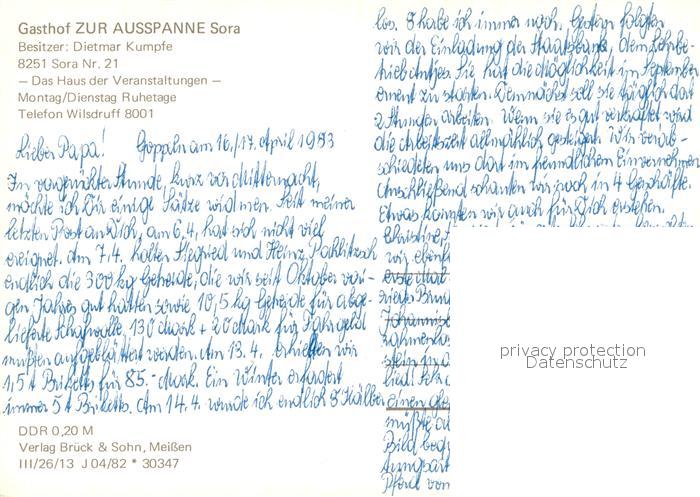 Gasthof ZUR AUSSPANNE Sora
Besitzer: Dietmar Kumpfe
8251 Sora Nr. 21
— Das Haus der Veranstaltungen —
Montag/Dienstag Ruhetage
Telefon Wilsdruff 8001
Lieber Papa! Goppeln am 16./17. April 1983
In vorgerückter Stunde, kurz vor Mitternacht,
möchte ich Dir einige Sätze widmen. Seit meiner
letzten Post an Dich, am 6.4. hat sich nicht viel
ereignet. Am 7.4. holten Siegfried und Heinz
endlich die 300 kg Getreide, die wir seit Oktober vori-
gen Jahres gut hatten sowie 10,5 kg Getreide für abge-
lieferte Schafwolle. 130 Mark + 20 Mark für Fahrgeld
mußten aufgeblättert werden. Am 13.4. erhielten wir
1,5 t Briketts für 85.- Mark. Ein Winter erfordert
immer 5 t Briketts. Am 14.4. wurde ich endlich 8 Kälber
DDR 0,20 M
Verlag Brück & Sohn, Meißen
III/26/13 J 04/82 * 30347
los. 8 habe ich immer noch. Gestern folgten
wir der Einladung der Staatsbank, dem Lehrbe-
trieb Antjes. Sie hat die Möglichkeit im September
erneut zu starten. Demnächst soll sie täglich dort
2 Stunden arbeiten. Wenn sie es gut verkraftet wird
die Arbeitszeit allmählich gesteigert. Wir verab-
schiedeten uns dort im freundlichen Einvernehmen
Anschließend schauten wir noch in 4 Geschäfte.
Etwas konnten wir auch für Dich erstehen.
Christine,
wir ebenf
erste
Johannis
lied!
einen
müßte
Bild
Pferd von
privacy protection
Datenschutz